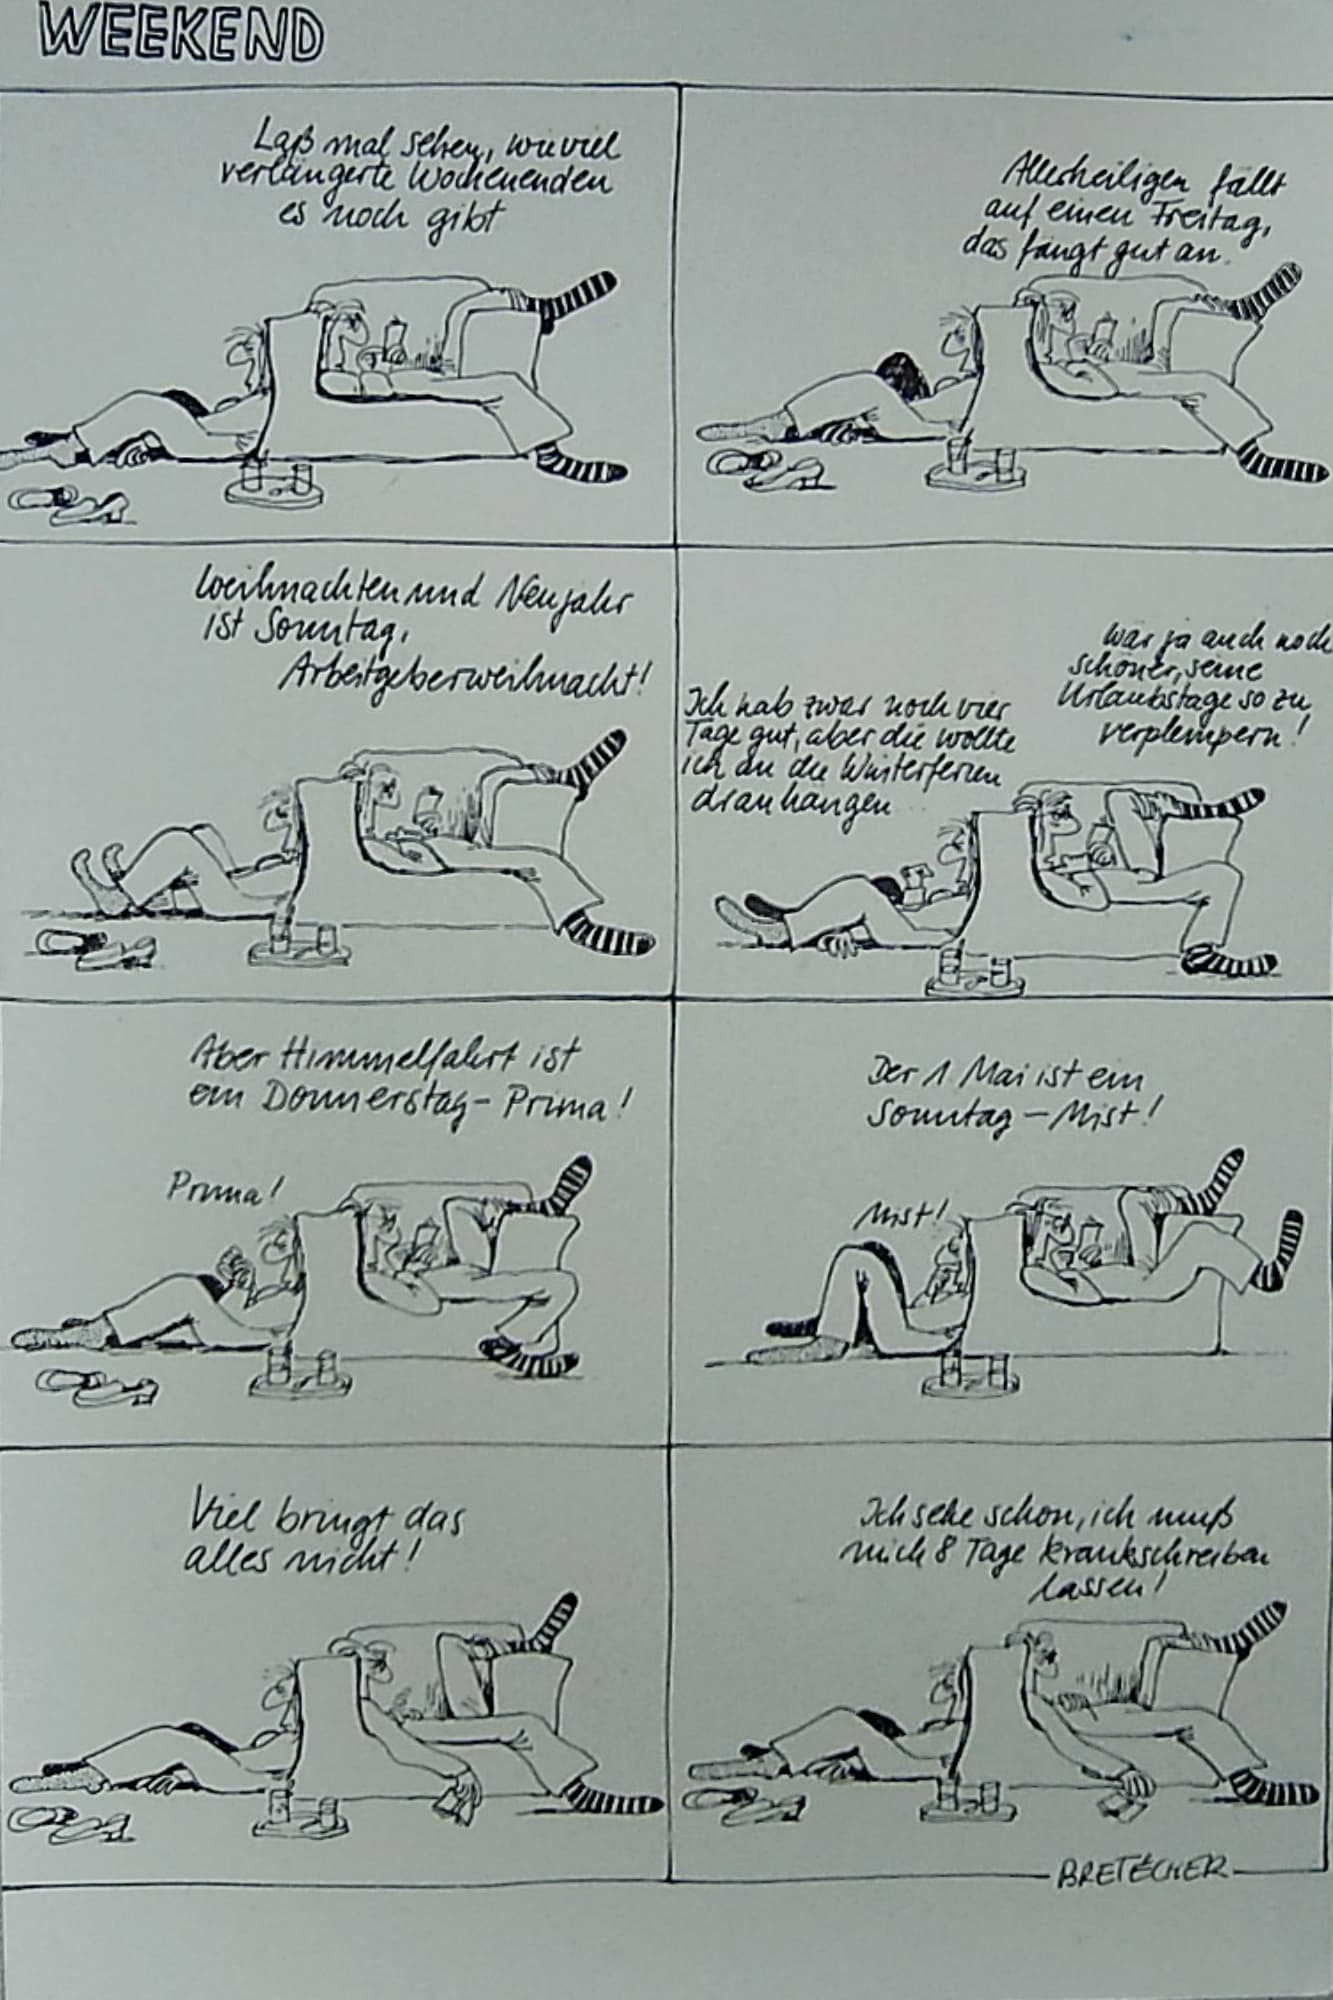 WEEKEND
Laß mal sehen, wieviel
verlängerte Wochenenden
es noch gibt
Allerheiligen fällt
auf einen Freitag,
das fängt gut an.
Weihnachten und Neujahr
ist Sonntag,
Arbeitgeberweihnacht!
Ich hab zwar noch vier
Tage gut, aber die wollte
ich an die Winterferien
dranhängen
Wär ja auch noch
schöner, seine
Urlaubstage so zu
verplempern!
Aber Himmelfahrt ist
ein Donnerstag - Prima!
Prima!
Der 1 Mai ist ein
Sonntag - Mist!
Mist!
Viel bringt das
alles nicht!
Ich sehe schon, ich muß
mich 8 Tage krankschreiben
lassen!
BRETÉCHER